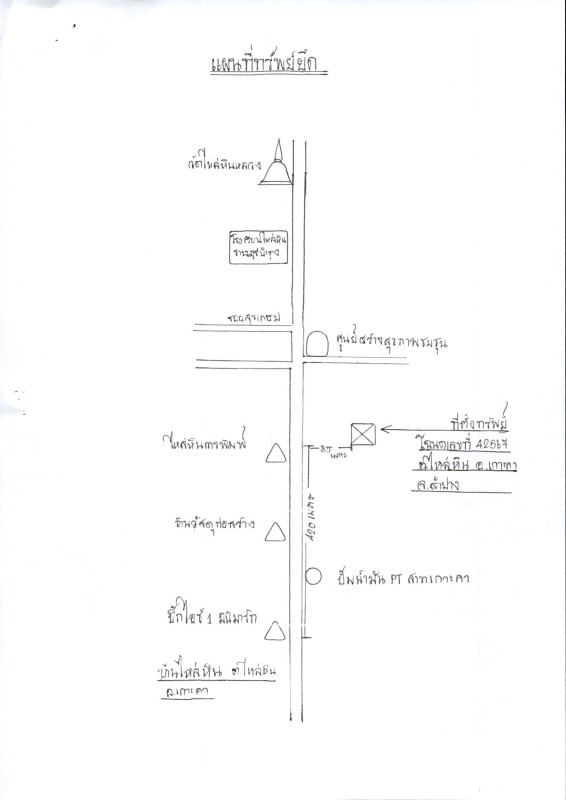 แผนที่ทรัพย์ยึด
วัดไหล่หินหลวง
โรงเรียนไหล่หิน
ราษฎร์บำรุง
ศูนย์สร้างสุขภาพชุมชน
ที่ตั้งทรัพย์
โฉนดเลขที่ 42567
ต.ไหล่หิน อ.เกาะคา
จ.ลำปาง
ไหล่หินการพิมพ์
85
เมตร
420 เมตร
ร้านวัสดุก่อสร้าง
ปั๊มน้ำมัน PT สาขาเกาะคา
บิ๊กไอซ์ 1 มินิมาร์ท
บ้านไหล่หิน ต.ไหล่หิน
อ.เกาะคา